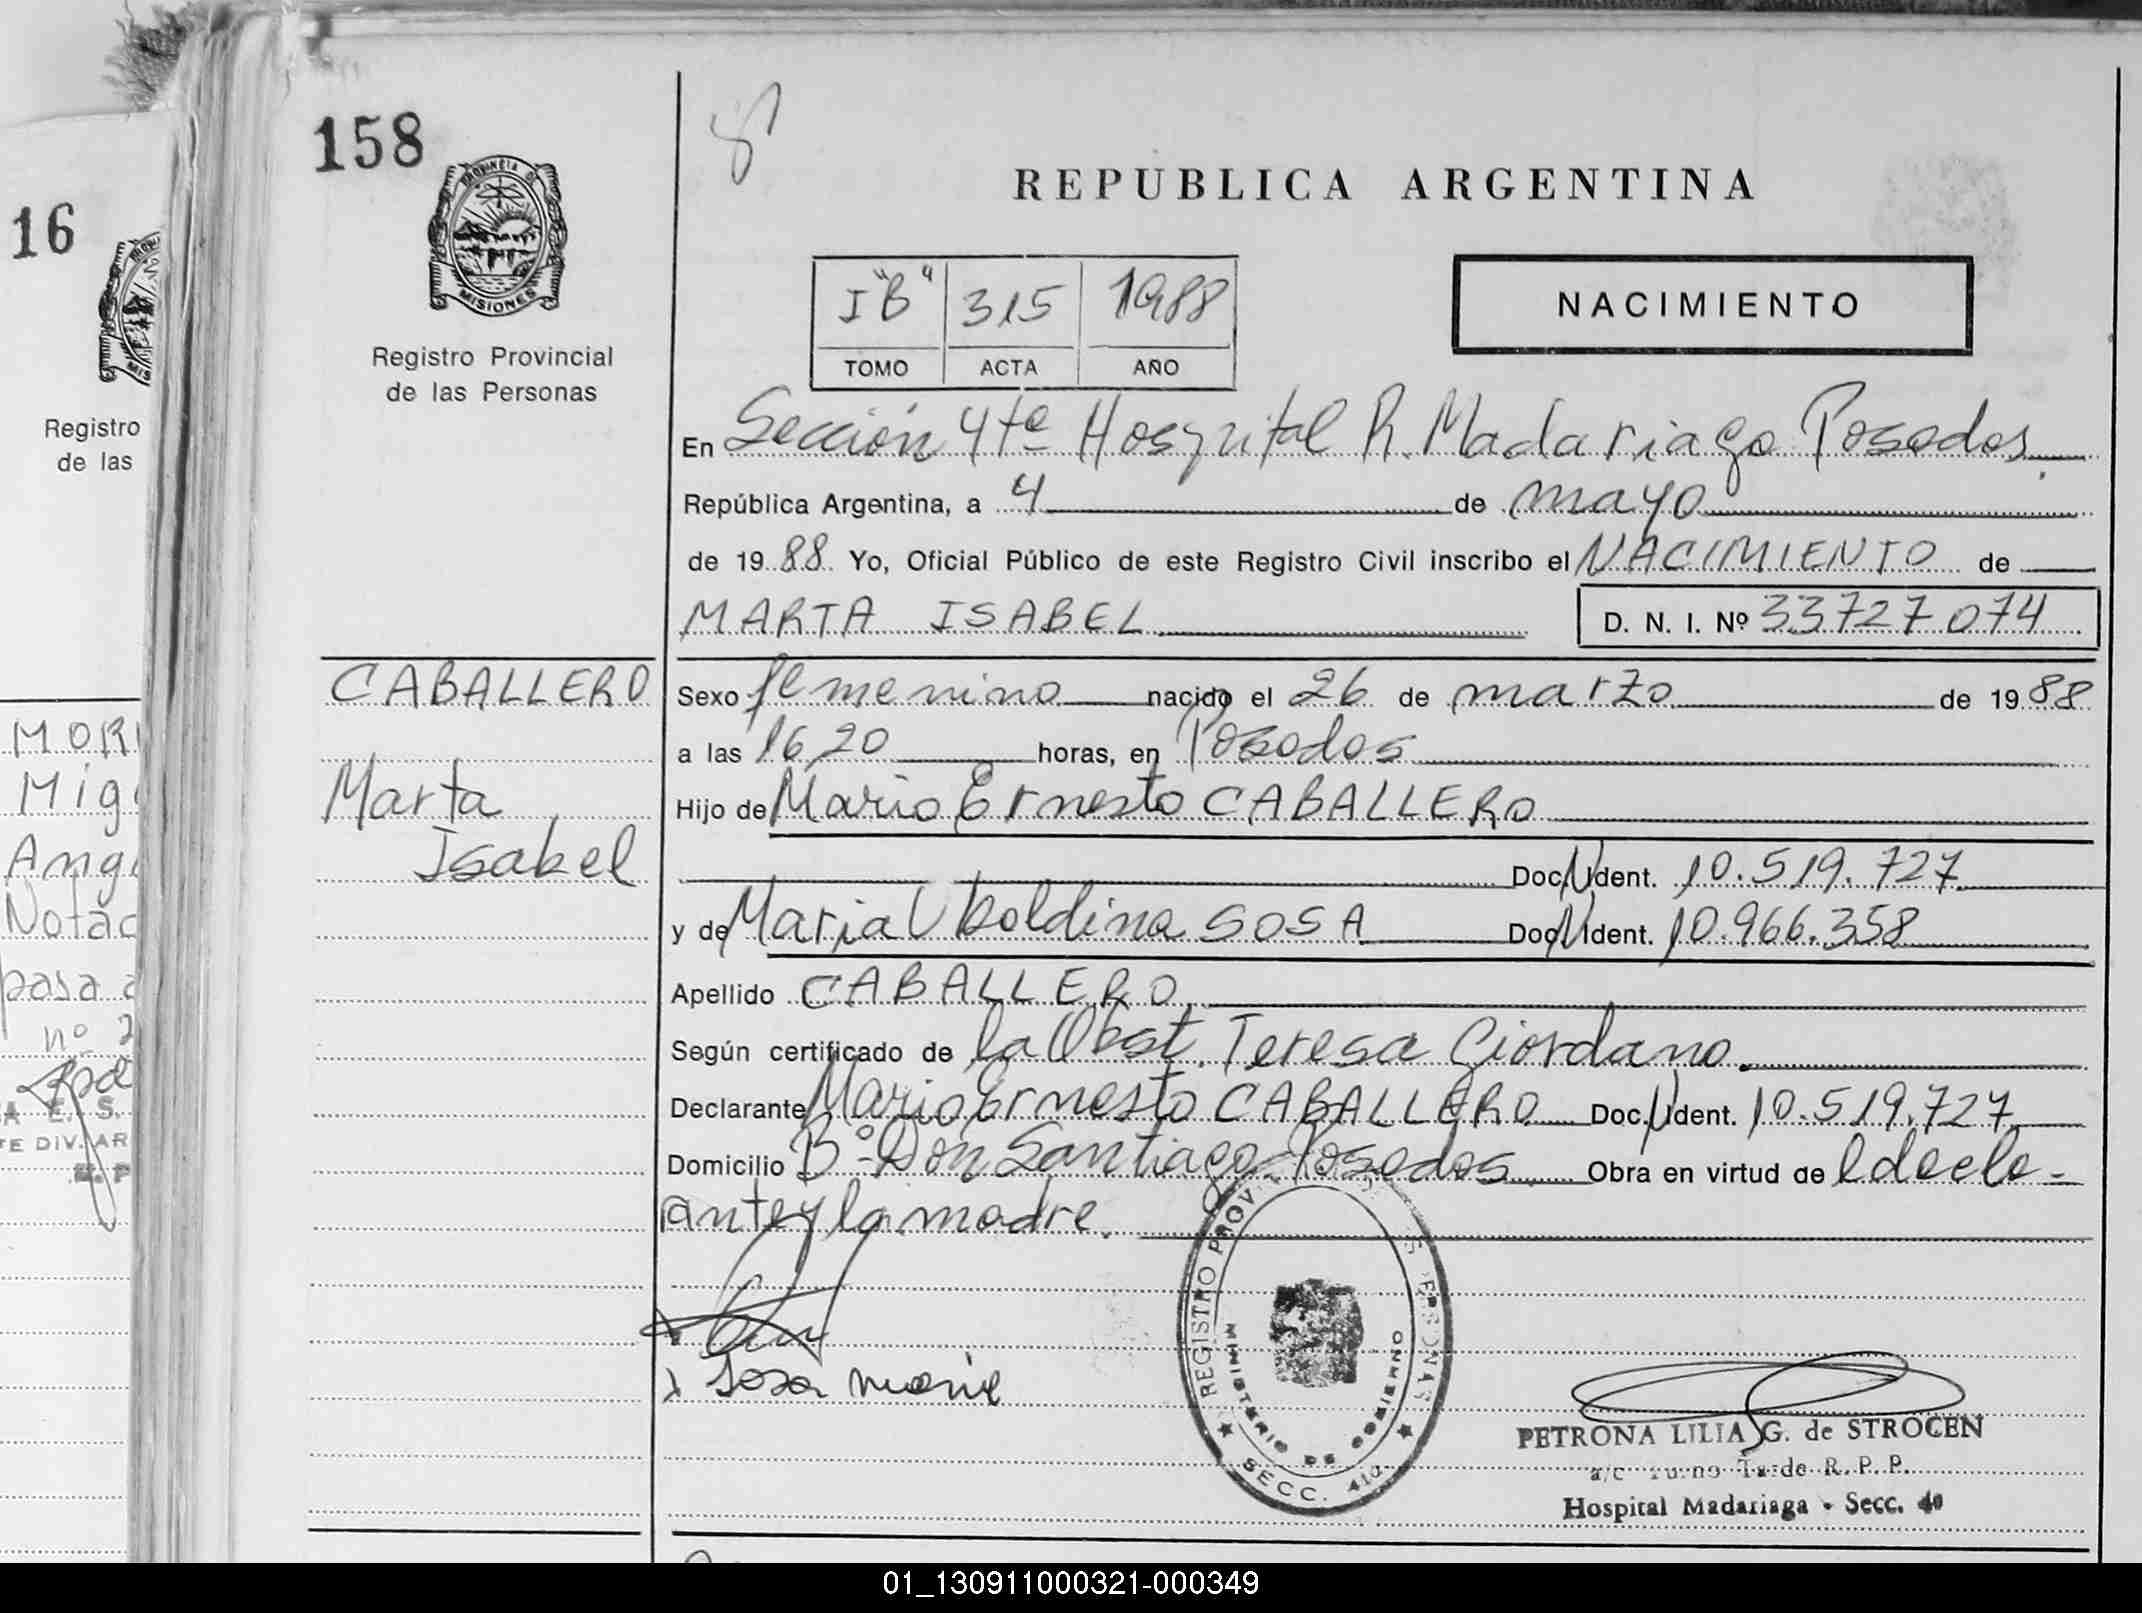 158
PROVINCIA DE
MISIONES
Registro Provincial
de las Personas
CABALLERO
Marta
Isabel
REPUBLICA ARGENTINA
I "B" 315 1988
TOMO ACTA AÑO
NACIMIENTO
En Sección 4ta Hospital R. Madariaga Posadas
República Argentina, a 4 de mayo
de 1988 Yo, Oficial Público de este Registro Civil inscribo el NACIMIENTO de
MARTA ISABEL D. N. I. Nº 33727074
Sexo femenino nacido el 26 de marzo de 1988
a las 16,20 horas, en Posadas
Hijo de Mario Ernesto CABALLERO
Doc. Ident. 10.519.727
y de Maria Uboldina SOSA Doc. Ident. 10.966.358
Apellido CABALLERO
Según certificado de la Obst. Teresa Giordano
Declarante Mario Ernesto CABALLERO Doc. Ident. 10.519.727
Domicilio Bº Don Santiago Posadas Obra en virtud de l decla-
ante y la madre.
x Sosa Marie
REGISTRO PROV PERSONAS
MINISTERIO DE GOBIERNO
SECC. 4ta
PETRONA LILIA G. de STROCEN
a/c Turno Tarde R. P. P.
Hospital Madariaga - Secc. 4a
16
Registro
de las
MOR
Mig
Ang
Notac
pasa a
nº 2
A E. S.
TE DIV. AR
01_130911000321-000349